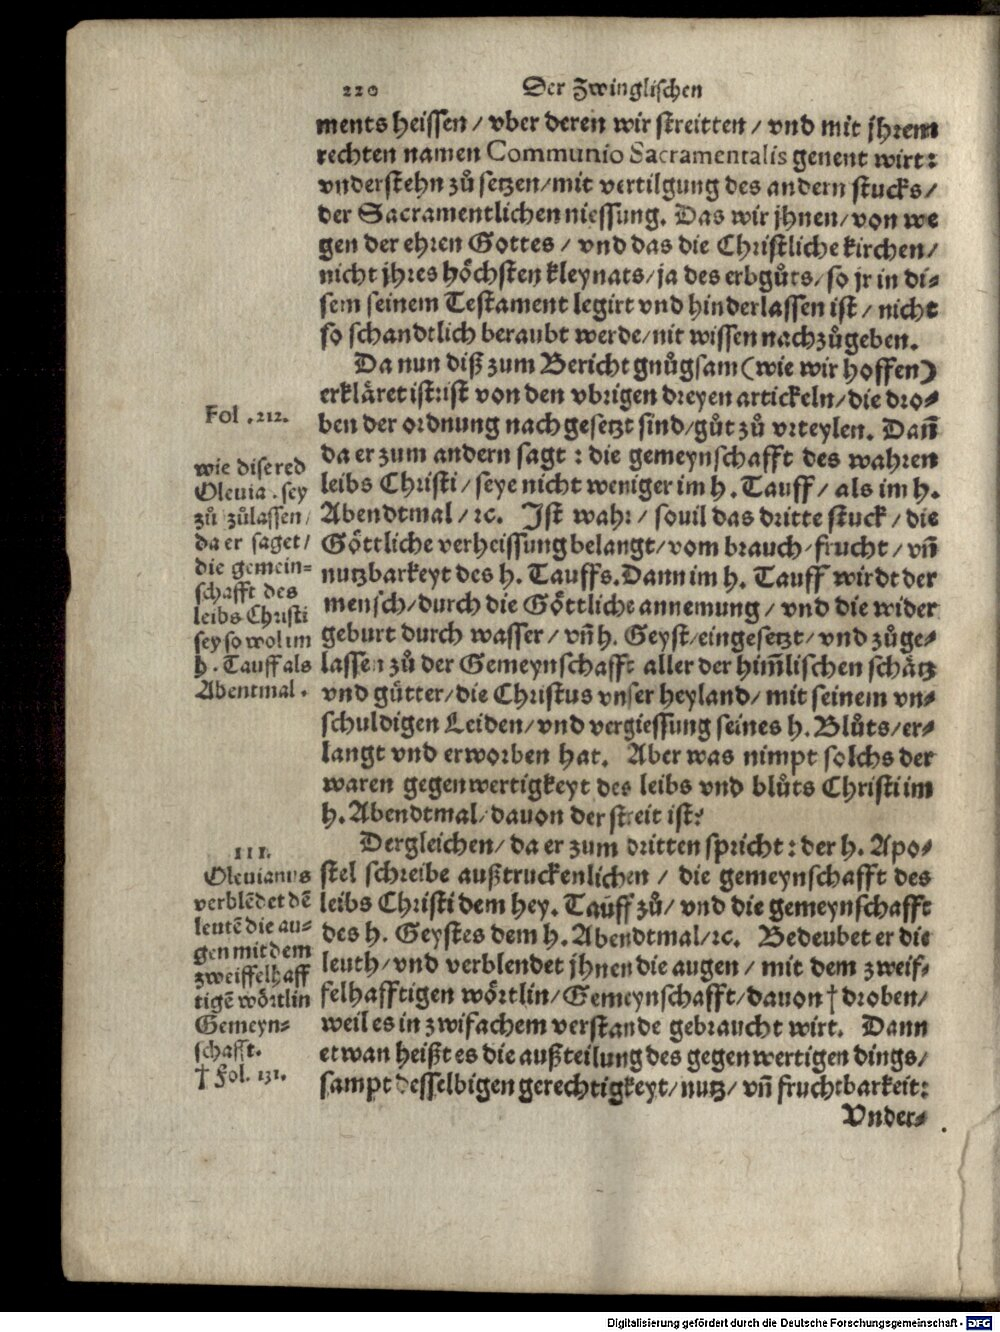 220 Der Zwinglischen
ments heissen / vber deren wir streitten / vnd mit jhrem
rechten namen Communio Sacramentalis genent wirt:
vnderstehn zů setzen/mit vertilgung des andern stucks/
der Sacramentlichen niessung. Das wir jhnen/von we
gen der ehren Gottes / vnd das die Christliche kirchen/
nicht jhres höchsten kleynats/ja des erbgůts/so jr in di⸗
sem seinem Testament legirt vnd hinderlassen ist / nicht
so schandtlich beraubt werde/nit wissen nachzůgeben.
Da nun diß zum Bericht gnůgsam (wie wir hoffen)
erkläret ist:ist von den vbrigen dreyen artickeln/die dro⸗
ben der ordnung nach gesetzt sind/gůt zů vrteylen. Dañ
da er zum andern sagt : die gemeynschafft des wahren
leibs Christi / seye nicht weniger im h. Tauff / als im h.
Abendtmal / ꝛc. Ist wahr / souil das dritte stuck / die
Göttliche verheissung belangt/vom brauch/frucht / vñ
nutzbarkeyt des h. Tauffs. Dann im h. Tauff wirdt der
mensch/durch die Göttliche annemung / vnd die wider
geburt durch wasser / vñ h. Geyst/eingesetzt/ vnd zůge⸗
lassen zů der Gemeynschafft aller der him̃lischen schätz
vnd gütter/die Christus vnser heyland/ mit seinem vn⸗
schuldigen Leiden/vnd vergiessung seines h. Blůts/er⸗
langt vnd erworben hat. Aber was nimpt solchs der
waren gegenwertigkeyt des leibs vnd blůts Christi im
h. Abendtmal/dauon der streit ist?
Dergleichen/ da er zum dritten spricht : der h. Apo⸗
stel schreibe außtruckenlichen / die gemeynschafft des
leibs Christi dem hey. Tauff zů/ vnd die gemeynschafft
des h. Geystes dem h. Abendtmal/ꝛc. Bedeubet er die
leuth/vnd verblendet jhnen die augen / mit dem zweif⸗
felhafftigen wörtlin/Gemeynschafft/dauon † droben/
weil es in zwifachem verstande gebraucht wirt. Dann
etwan heißt es die außteilung des gegenwertigen dings/
sampt desselbigen gerechtigkeyt/nutz/ vñ fruchtbarkeit:
Vnder⸗
Fol .212.
wie dise red
Oleuia . sey
zů zůlassen/
da er saget/
die gemein⸗
schafft des
leibs Christi
sey so wol im
h . Tauff als
Abentmal .
III.
Oleuianus
verblẽdet dẽ
leutẽ die au⸗
gen mit dem
zweiffelhaff
tigẽ wörtlin
Gemeyn⸗
schafft.
† Fol. 131.
Digitalisierung gefördert durch die Deutsche Forschungsgemeinschaft - DFG